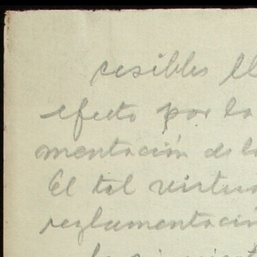 cesibles El
efecto por la
mentación de la
El tal virtu
reglamentación